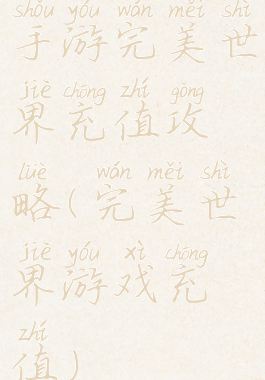 shǒu yóu wán měi shì
手游完美世
jiè chōng zhí gōng
界充值攻
lüè wán měi shì
略(完美世
jiè yóu xì chōng
界游戏充
zhí
值)